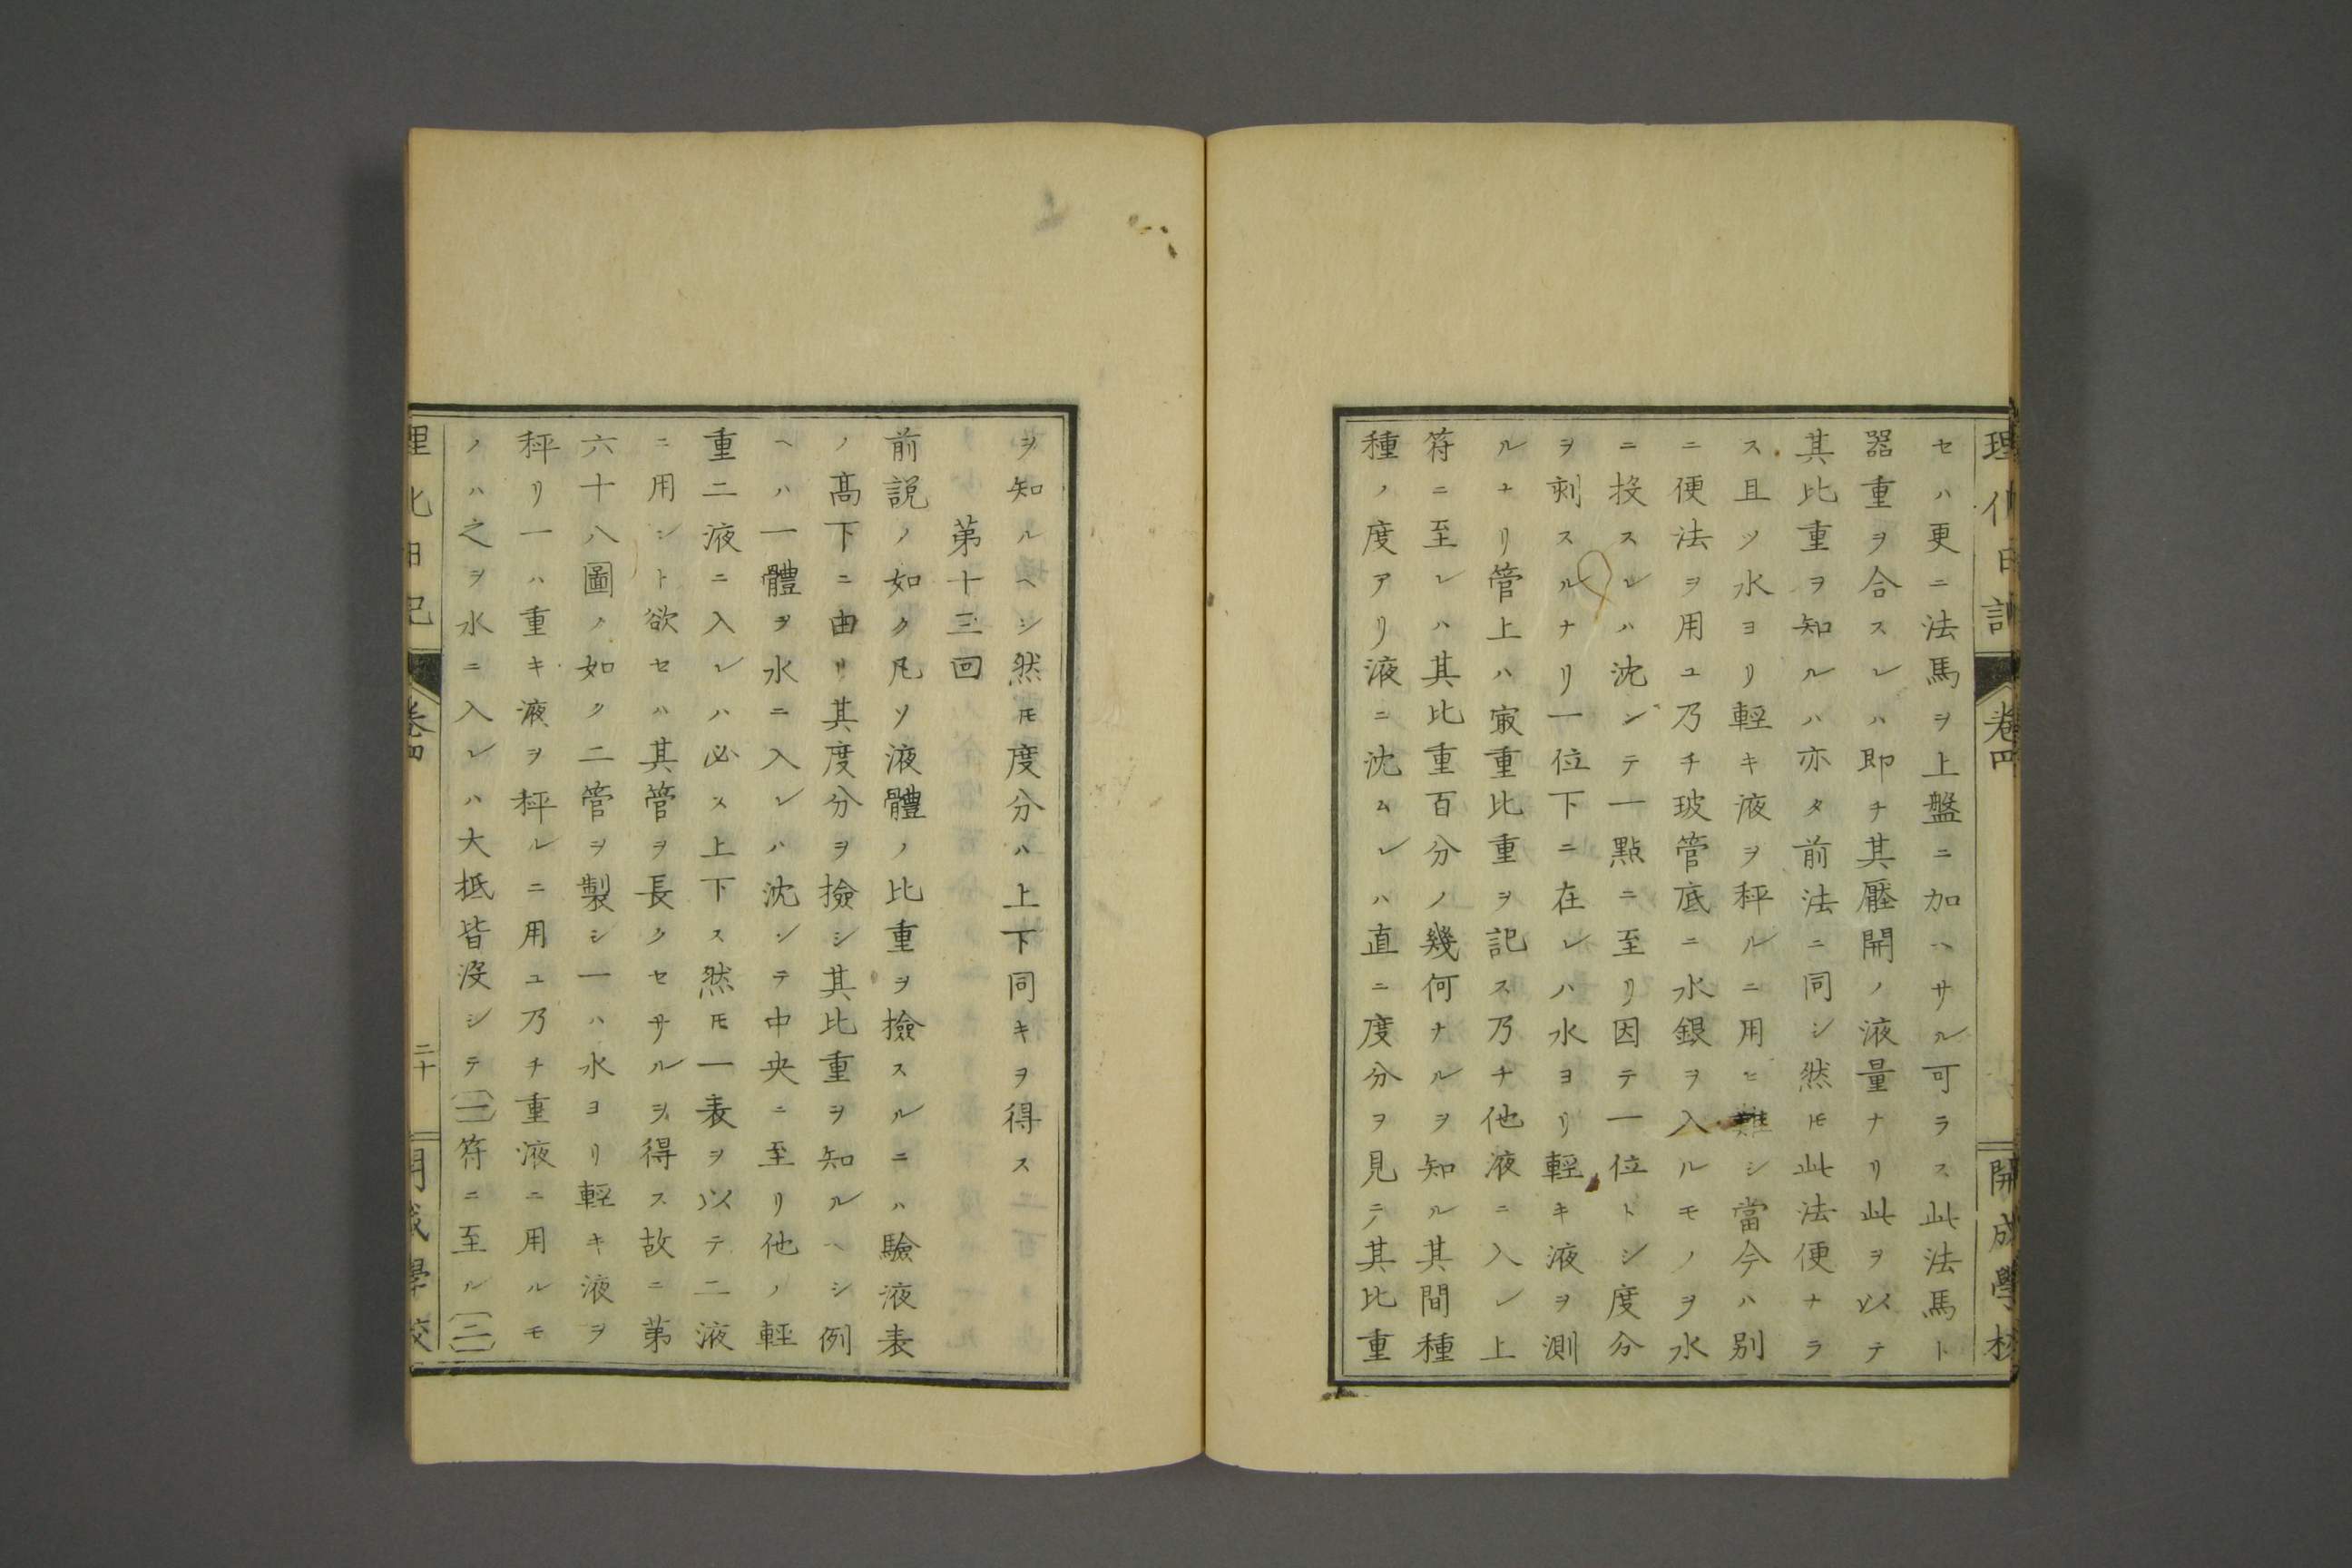 理化日記
卷四
開成學校
セハ更ニ法馬ヲ上盤ニ加ハサル可ラス此法馬ト
器重ヲ合スレハ即チ其壓開ノ液量ナリ此ヲ以テ
其比重ヲ知ルハ亦タ前法ニ同シ然𪜈此法便ナラ
ス且ツ水ヨリ輕キ液ヲ秤ルニ用ヒ難シ當今ハ別
ニ便法ヲ用ユ乃チ玻管底ニ水銀ヲ入ルモノヲ水
ニ投スレハ沈ンテ一點ニ至リ因テ一位トシ度分
ヲ刻スルナリ一位下ニ在レハ水ヨリ輕キ液ヲ測
ルナリ管上ハ㝡重比重ヲ記ス乃チ他液ニ入レ上
符ニ至レハ其比重百分ノ幾何ナルヲ知ル其間種
種ノ度アリ液ニ沈ムレハ直ニ度分ヲ見テ其比重
ヲ知ルヘシ然𪜈度分ハ上下同キヲ得ス
第十三回
前説ノ如ク凡ソ液體ノ比重ヲ撿スルニハ驗液表
ノ髙下ニ由リ其度分ヲ撿シ其比重ヲ知ルヘシ例
ヘハ一體ヲ水ニ入レハ沈ンテ中央ニ至リ他ノ輕
重二液ニ入レハ必ス上下ス然𪜈一表ヲ以テ二液
ニ用ント欲セハ其管ヲ長クセサルヲ得ス故ニ第
六十八圖ノ如ク二管ヲ製シ一ハ水ヨリ輕キ液ヲ
秤リ一ハ重キ液ヲ秤ルニ用ユ乃チ重液ニ用ルモ
ノハ之ヲ水ニ入レハ大抵皆沒シテ(一)符ニ至ル(二)
理化日記
卷四
二十
開成學校